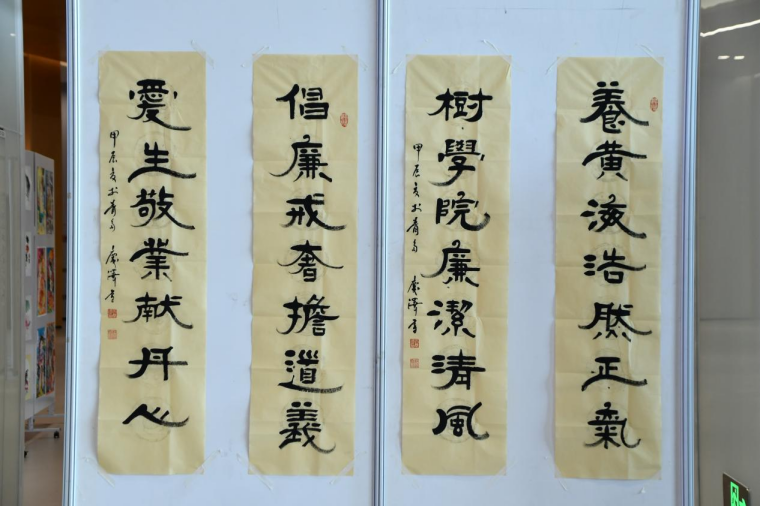 養黄海浩然正氣
樹學院廉潔清風
甲辰夏於青島
倡廉戒奢擔道義
愛生敬業献丹心
甲辰夏於青島